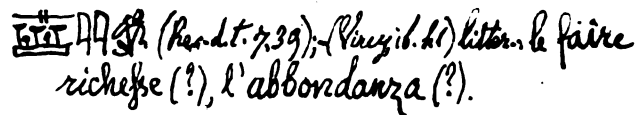 (Rec. d. t. 7, 39); (Virey, ib. hi) litter., le faire
richesse (?), l'abbondanza (?).